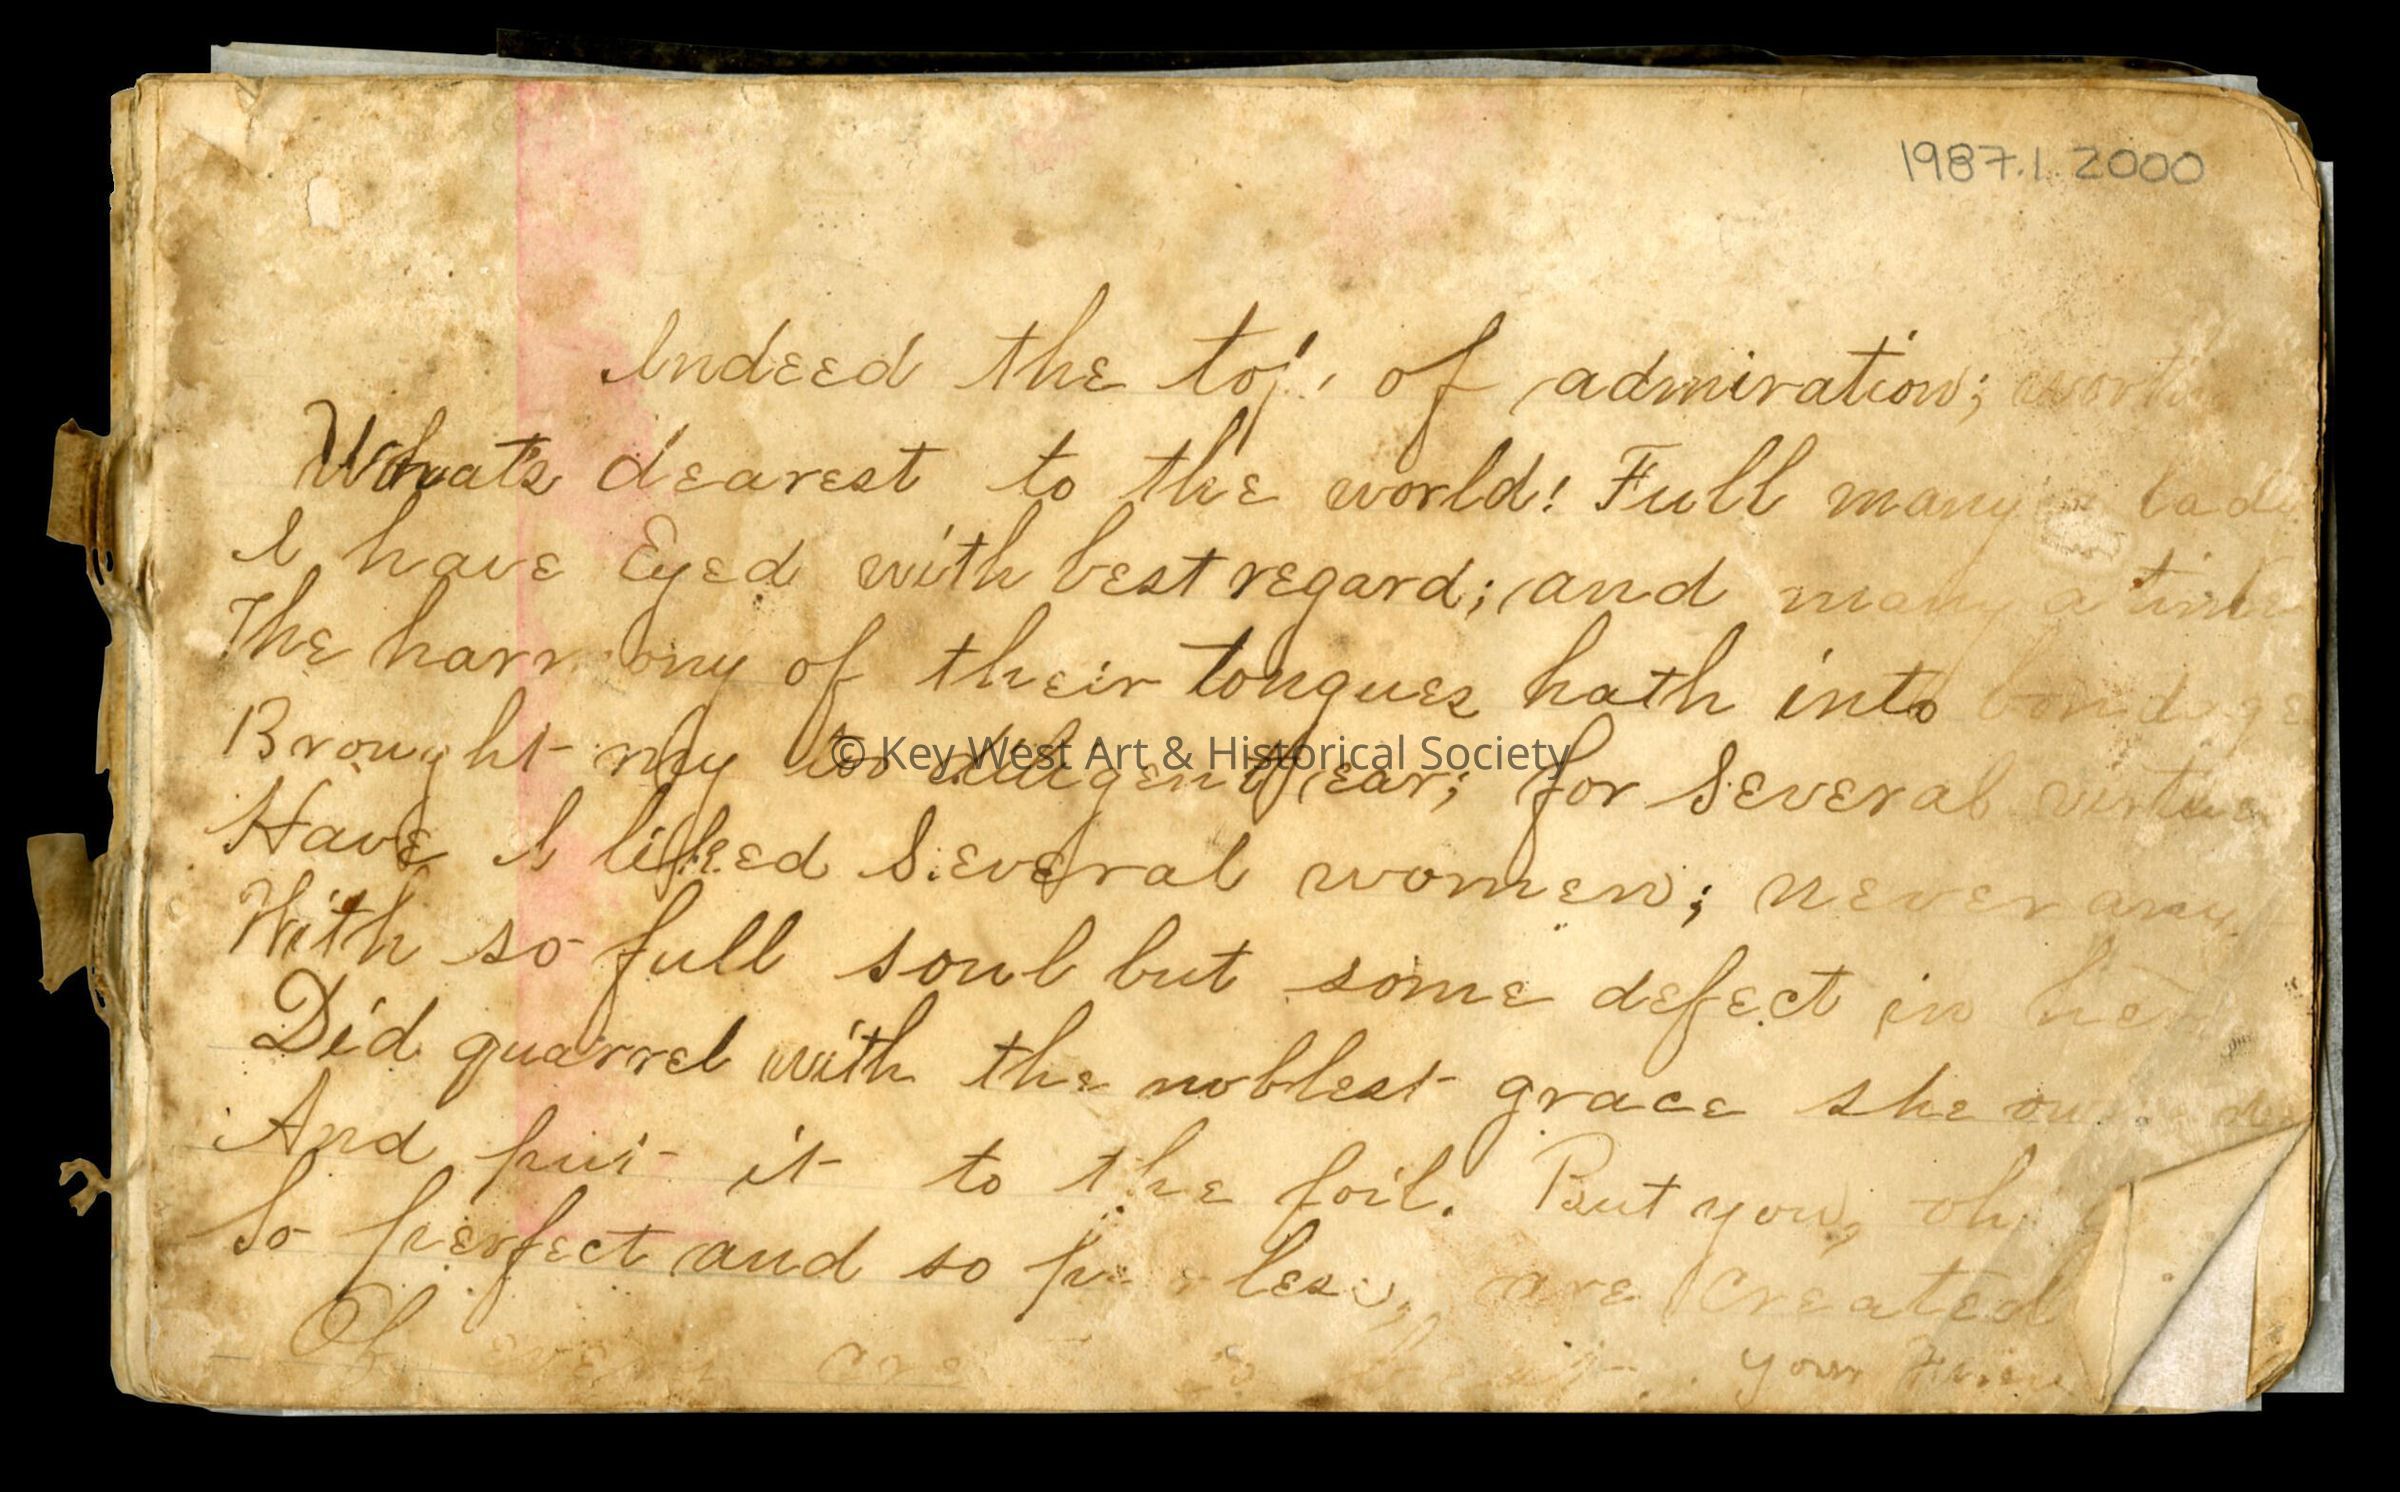 1987.1.2000
Indeed the top of admiration; worth
What's dearest to the world! Full many a lady
I have Eyed with best regard; and many a time
The harmony of their tongues hath into bondage
Brought my too diligent ear; for Several virtues
© Key West Art & Historical Society
Have I liked Several women; never any
With so full soul but some defect in her
Did quarrel with the noblest grace she
And put it to the foil. But you, oh
So perfect and so peerless, are Created
Of every your